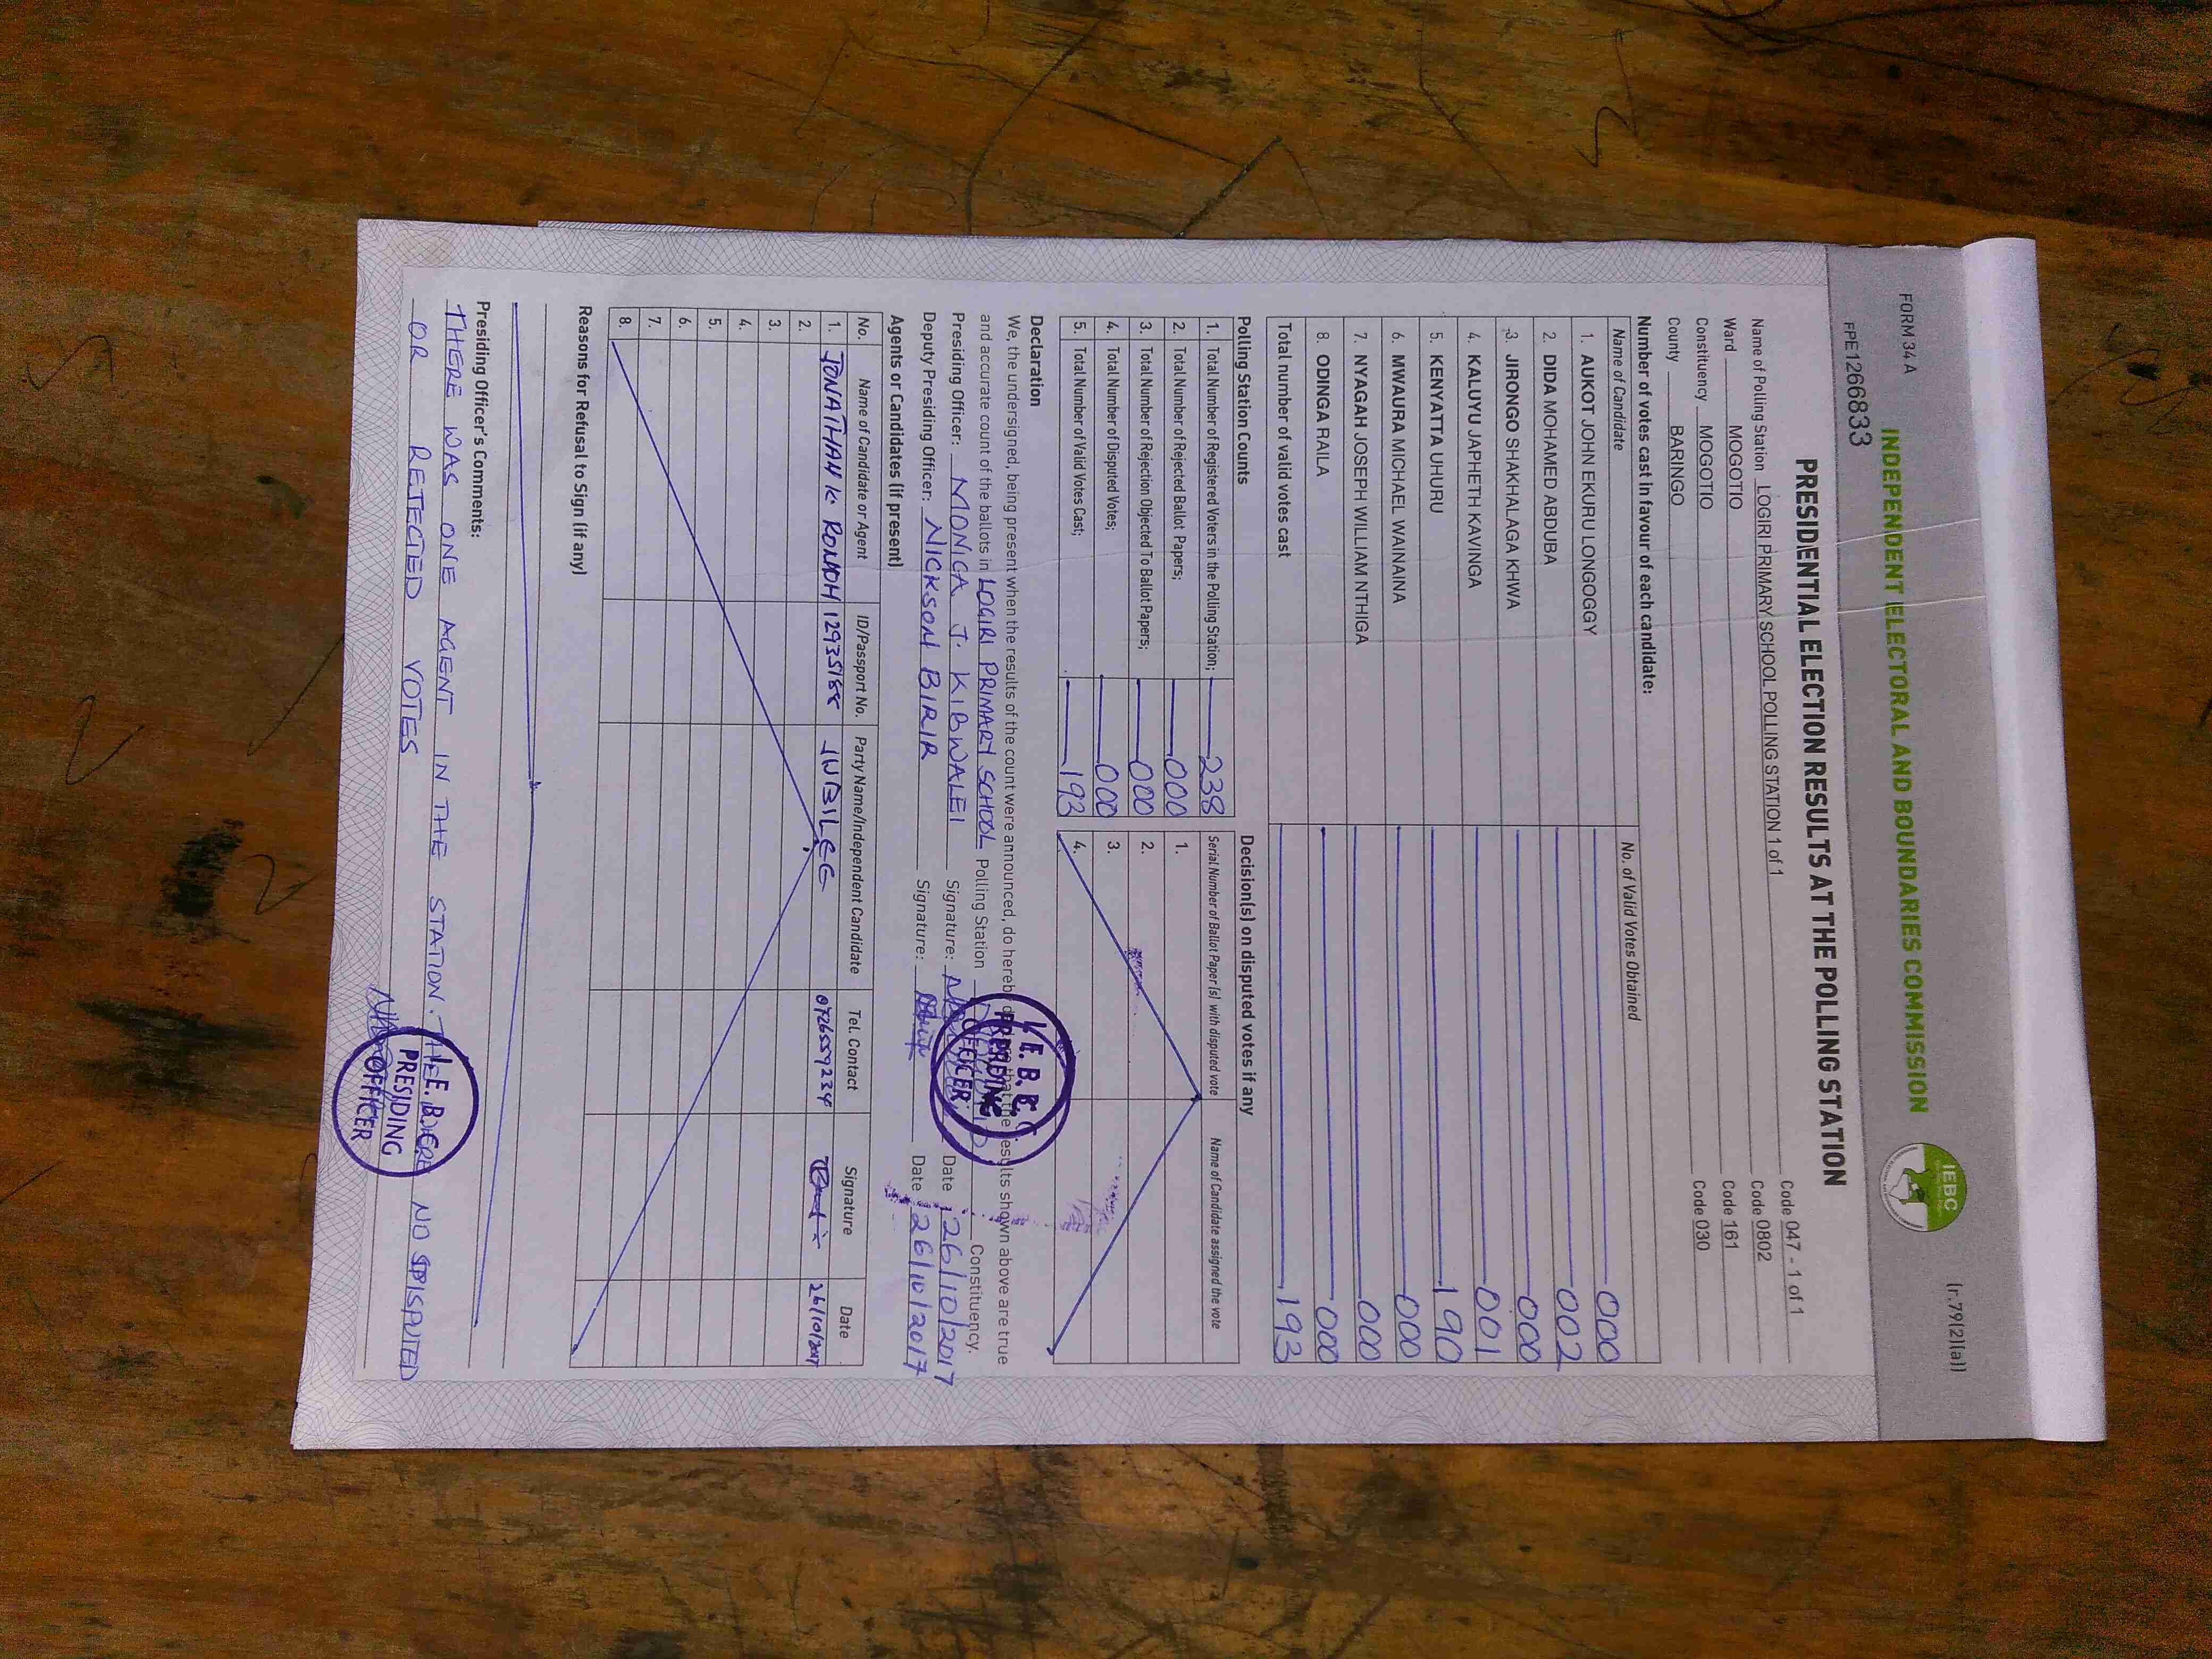 FORM 34 A
(r.79(2)(a))
INDEPENDENT ELECTORAL AND BOUNDARIES COMMISSION
IEBC
FPE1266833
PRESIDENTIAL ELECTION RESULTS AT THE POLLING STATION
Name of Polling Station LOGIRI PRIMARY SCHOOL POLLING STATION 1 of 1 Code 047 - 1 of 1
Ward MOGOTIO Code 0802
Constituency MOGOTIO Code 161
County BARINGO Code 030
Number of votes cast in favour of each candidate:
Name of Candidate No. of Valid Votes Obtained
1. AUKOT JOHN EKURU LONGOGGY 000
2. DIDA MOHAMED ABDUBA 002
3. JIRONGO SHAKHALAGA KHWA 000
4. KALUYU JAPHETH KAVINGA 001
5. KENYATTA UHURU 190
6. MWAURA MICHAEL WAINAINA 000
7. NYAGAH JOSEPH WILLIAM NTHIGA 000
8. ODINGA RAILA 000
Total number of valid votes cast 193
Polling Station Counts
1. Total Number of Registered Voters in the Polling Station; 238
2. Total Number of Rejected Ballot Papers; 000
3. Total Number of Rejection Objected To Ballot Papers; 000
4. Total Number of Disputed Votes; 000
5. Total Number of Valid Votes Cast; 193
Decision(s) on disputed votes if any
Serial Number of Ballot Paper(s) with disputed vote Name of Candidate assigned the vote
1.
2.
3.
4.
Declaration
We, the undersigned, being present when the results of the count were announced, do hereby declare that the results shown above are true
and accurate count of the ballots in LOGIRI PRIMARY SCHOOL Polling Station Constituency.
Presiding Officer: MONICA J. KIBWALEI Signature: Date 26/10/2017
Deputy Presiding Officer: NICKSON BIRIR Signature: Date 26/10/2017
I. E. B. C.
PRESIDING
OFFICER
Agents or Candidates (if present)
No. Name of Candidate or Agent ID/Passport No. Party Name/Independent Candidate Tel. Contact Signature Date
1. JONATHAN K. ROMOH 12935188 JUBILEE 0726559234 26/10/2017
2.
3.
4.
5.
6.
7.
8.
Reasons for Refusal to Sign (if any)
Presiding Officer's Comments:
THERE WAS ONE AGENT IN THE STATION. THERE NO DISPUTED
OR REJECTED VOTES
I.E.B.C.
PRESIDING
OFFICER